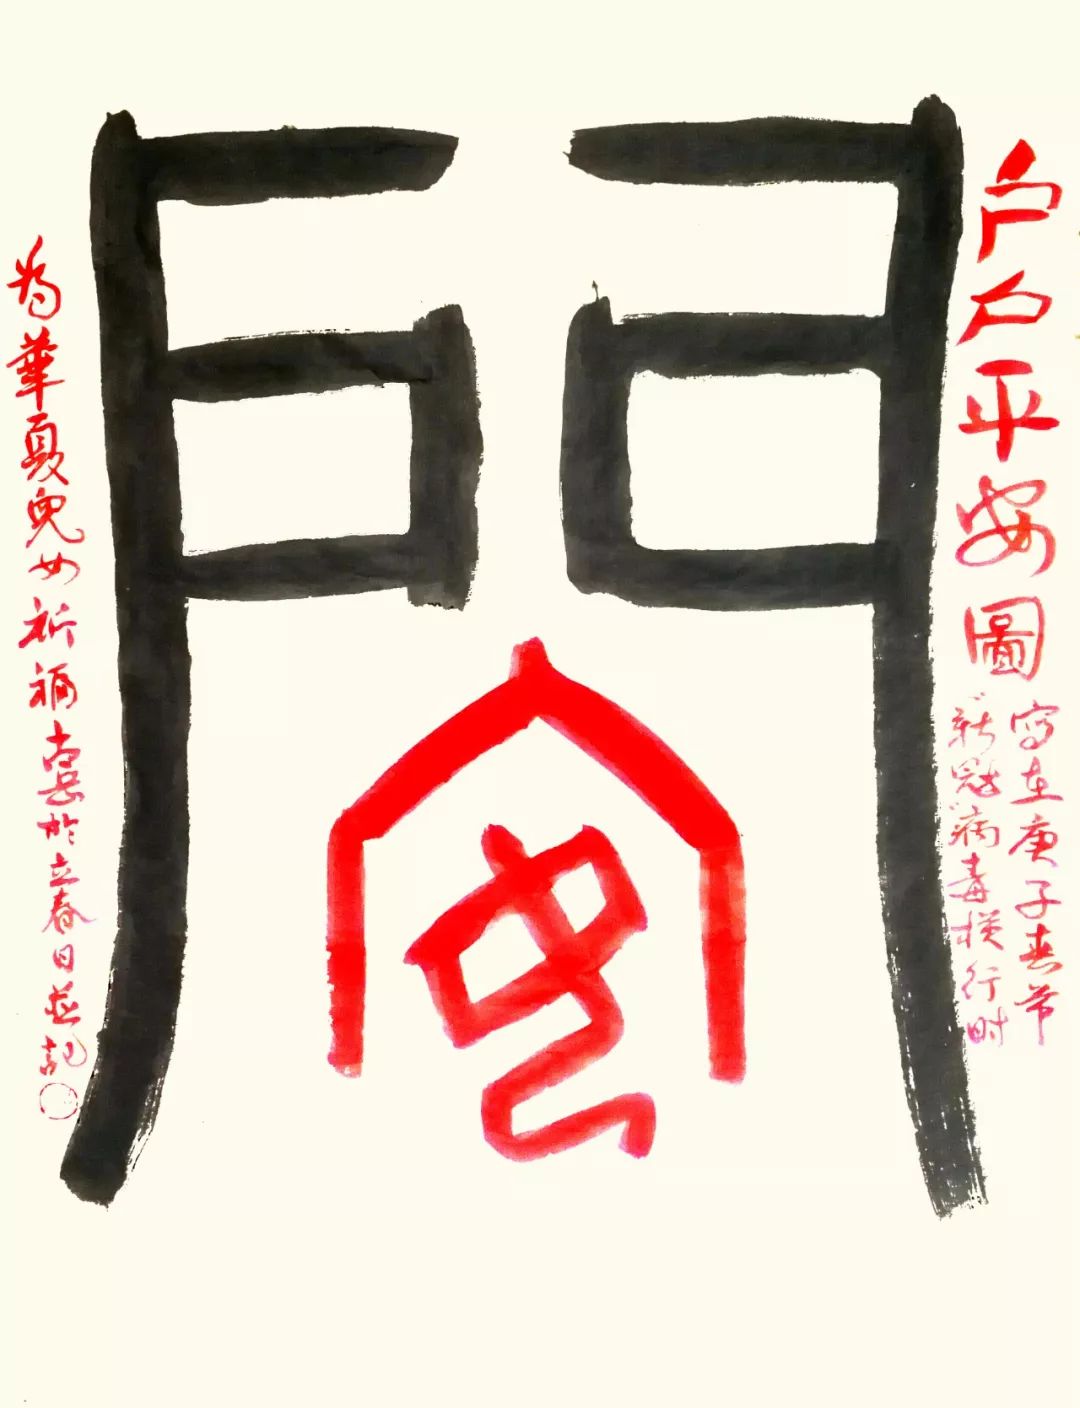 户户平安圖
写在庚子春节
"新冠"病毒横行时
門
安
為華夏兒女祈福 於立春日並記